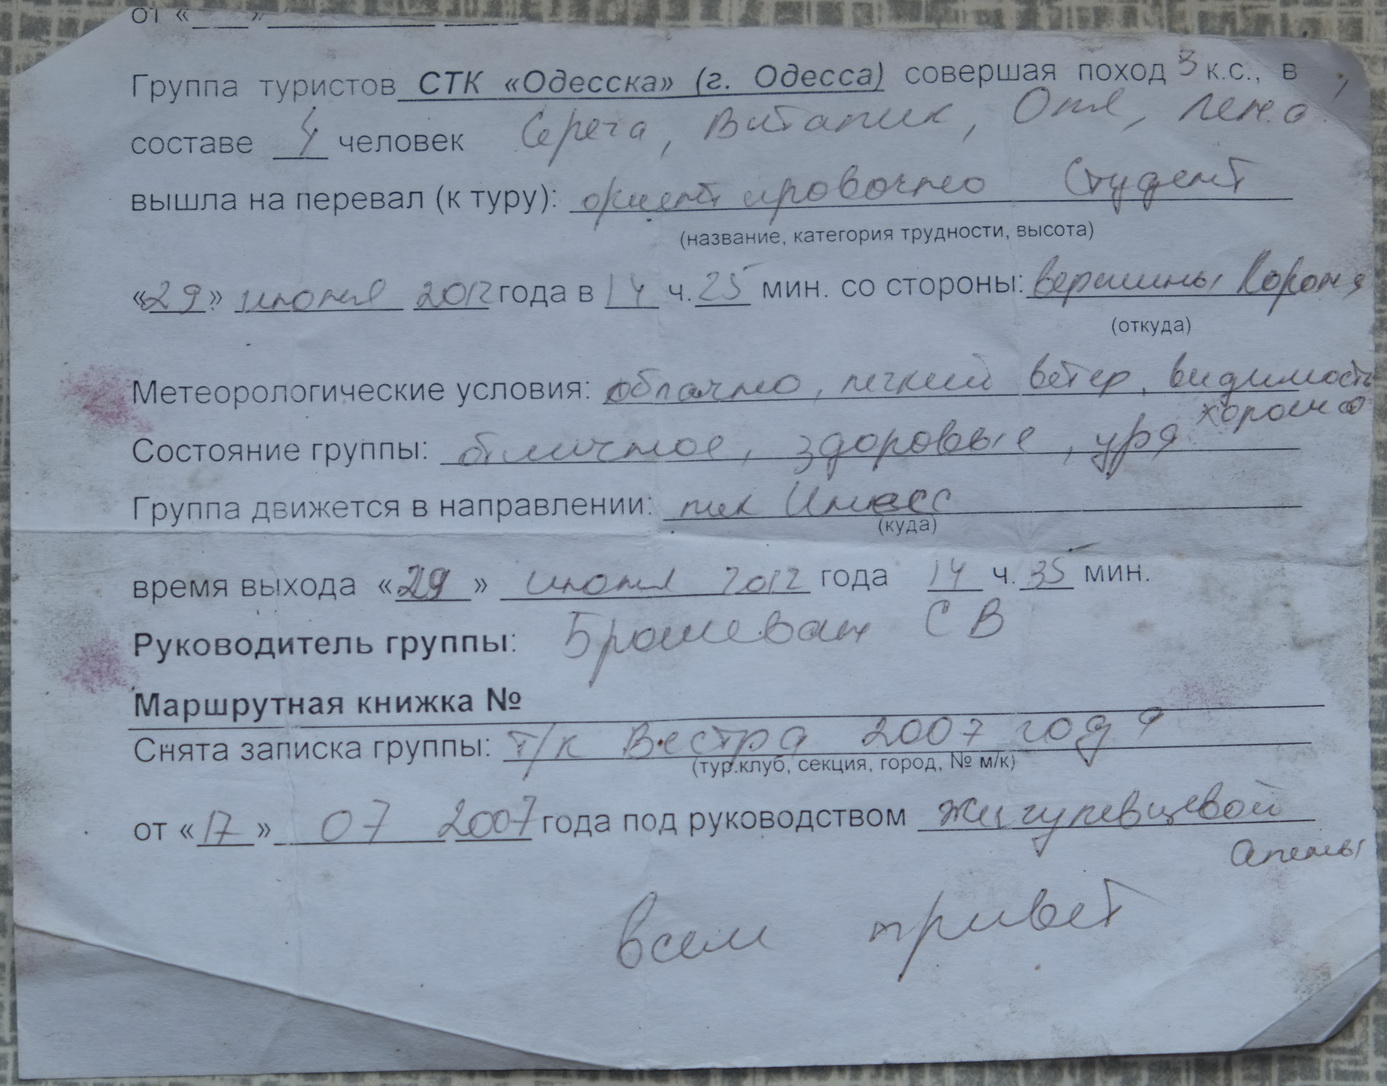 от «____» ____________
Группа туристов СТК «Одесска» (г. Одесса) совершая поход 3 к.с., в
составе 4 человек Серега, Виталик, Оля, Лена
вышла на перевал (к туру): ориентировочно Студент
(название, категория трудности, высота)
«29» июля 2012 года в 14 ч. 25 мин. со стороны: вершины Корона
(откуда)
Метеорологические условия: облачно, легкий ветер, видимость
хорошая
Состояние группы: отличное, здоровые, ура
Группа движется в направлении: пик
(куда)
время выхода «29» июля 2012 года 14 ч. 35 мин.
Руководитель группы: С В
Маршрутная книжка №
Снята записка группы: т/к Вестра 2007 года
(тур.клуб, секция, город, № м/к)
от «17» 07 2007 года под руководством Жигулевцевой
Алены
всем привет